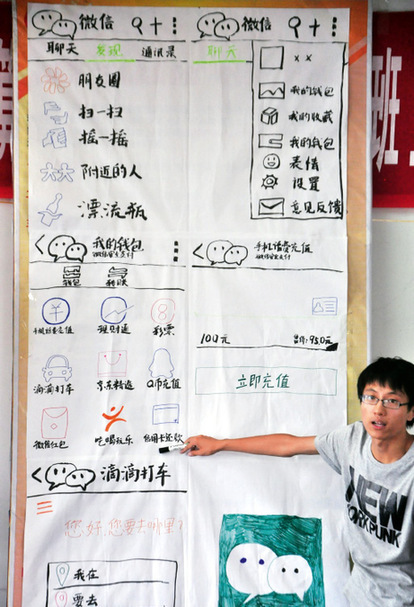 微信
聊天 发现 通讯录
朋友圈
扫一扫
摇一摇
附近的人
漂流瓶
微信
聊天
××
我的收藏
我的钱包
表情
设置
意见反馈
我的钱包
微信安全支付
钱包
手机话费充值
理财通
彩票
滴滴打车
京东精选
Q币充值
微信红包
吃喝玩乐
信用卡还款
手机话费充值
微信安全支付
100元
售价:95.0元
立即充值
滴滴打车
您好,您要去哪里?
我在
要去
NEW YORK PUNK
班